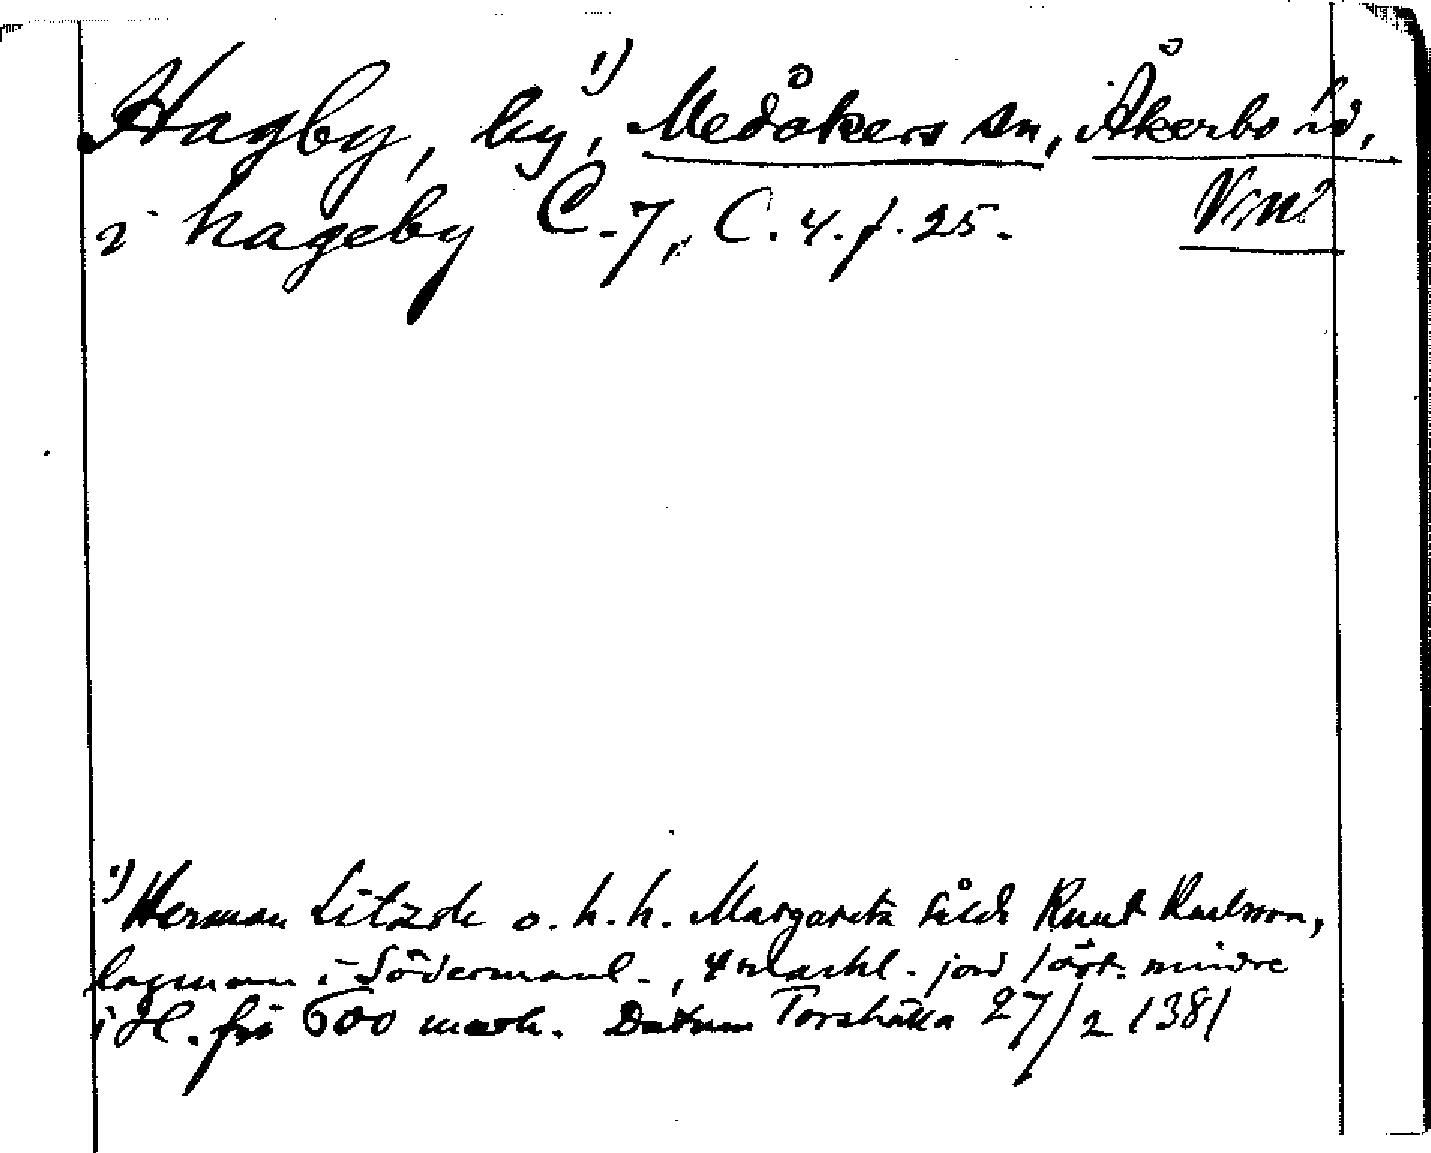 Hagby, by,¹⁾ Medåkers sn, Åkerbo hd,
i hageby C.-7, C.4.f.25. Vml
¹⁾ Herman Litzok o. h. h. Margareta sålde Knut Karlsson,
lagman i Södermanl-, 4 markl. jord 1 ört. mindre
i H. för 600 mark. Datum Torshälla 27/2 1381